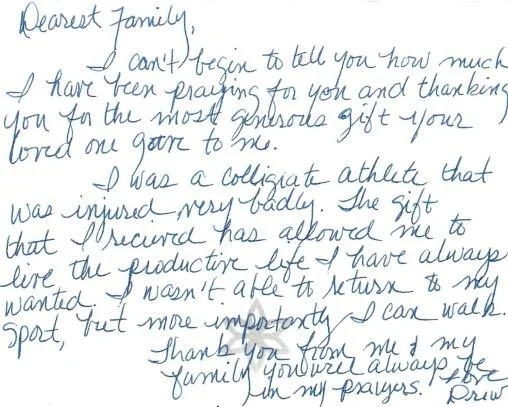 Dearest Family,
I can't begin to tell you how much
I have been praying for you and thanking
you for the most generous gift your
loved one gave to me.
I was a colligiate athlete that
was injured very badly. The gift
that I recieved has allowed me to
live the productive life I have always
wanted. I wasn't able to return to my
sport, but more importanty I can walk.
Thank you from me & my
family you will always be
in my prayers. Love
Drew